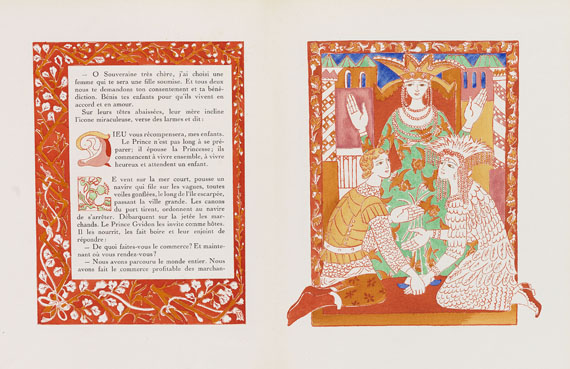 — O Souveraine très chère, j'ai choisi une
femme qui te sera une fille soumise. Et tous deux
nous te demandons ton consentement et ta béné-
diction. Bénis tes enfants pour qu'ils vivent en
accord et en amour.
Sur leurs têtes abaissées, leur mère incline
l'icone miraculeuse, verse des larmes et dit :
DIEU vous récompensera, mes enfants.
Le Prince n'est pas long à se pré-
parer; il épouse la Princesse; ils
commencent à vivre ensemble, à vivre
heureux et attendent un enfant.
LE vent sur la mer court, pousse un
navire qui file sur les vagues, toutes
voiles gonflées, le long de l'île escarpée,
passant la ville grande. Les canons
du port tirent, ordonnent au navire
de s'arrêter. Débarquent sur la jetée les mar-
chands. Le Prince Gvidon les invite comme hôtes.
Il les nourrit, les fait boire et leur enjoint de
répondre :
— De quoi faites-vous le commerce? Et mainte-
nant où vous rendez-vous?
— Nous avons parcouru le monde entier. Nous
avons fait le commerce profitable des marchan-